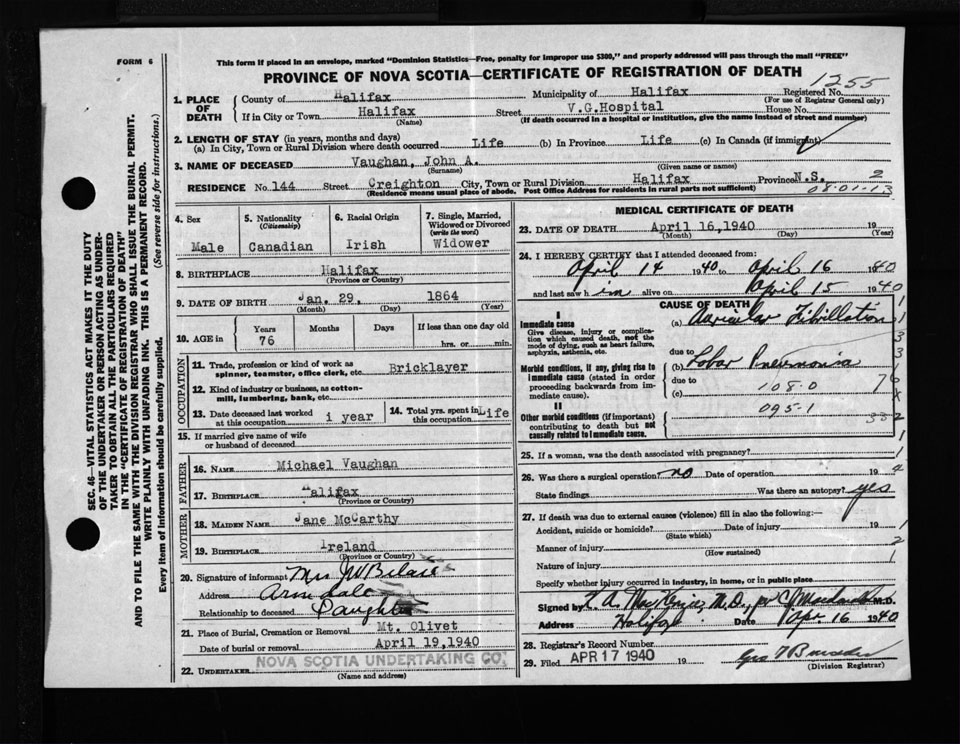 FORM 6
This form if placed in an envelope, marked "Dominion Statistics—Free, penalty for improper use $300," and properly addressed will pass through the mail "FREE"
PROVINCE OF NOVA SCOTIA—CERTIFICATE OF REGISTRATION OF DEATH
1255
1. PLACE OF DEATH
County of Halifax Municipality of Halifax Registered No.
(For use of Registrar General only)
If in City or Town Halifax Street V.G.Hospital House No.
(Name) (If death occurred in a hospital or institution, give the name instead of street and number)
2. LENGTH OF STAY (in years, months and days)
(a) In City, Town or Rural Division where death occurred, Life (b) In Province Life (c) In Canada (if immigrant)
3. NAME OF DECEASED Vaughan, John A.
(Surname) (Given name or names)
RESIDENCE No. 144 Street Creighton City, Town or Rural Division Halifax Province N.S. 2
(Residence means usual place of abode. Post Office Address for residents in rural parts not sufficient) 08-01-13
4. Sex Male
5. Nationality (Citizenship) Canadian
6. Racial Origin Irish
7. Single, Married, Widowed or Divorced (write the word) Widower
8. BIRTHPLACE Halifax
(Province or Country)
9. DATE OF BIRTH Jan. 29, 1864
(Month) (Day) (Year)
10. AGE in Years Months Days If less than one day old
76 hrs. or min.
OCCUPATION
11. Trade, profession or kind of work as spinner, teamster, office clerk, etc. Bricklayer
12. Kind of industry or business, as cotton-mill, lumbering, bank, etc.
13. Date deceased last worked at this occupation 1 year
14. Total yrs. spent in this occupation Life
15. If married give name of wife or husband of deceased
FATHER
16. NAME Michael Vaughan
17. BIRTHPLACE Halifax
(Province or Country)
MOTHER
18. MAIDEN NAME Jane McCarthy
19. BIRTHPLACE Ireland
(Province or Country)
20. Signature of informant Mrs
Address Armdale
Relationship to deceased Daughter
21. Place of Burial, Cremation or Removal Mt. Olivet
Date of burial or removal April 19, 1940
22. UNDERTAKER NOVA SCOTIA UNDERTAKING CO.
(Name and address)
MEDICAL CERTIFICATE OF DEATH
23. DATE OF DEATH April 16, 1940 19
(Month) (Day) (Year)
24. I HEREBY CERTIFY that I attended deceased from:
April 14 1940 to April 16 1940
and last saw him alive on April 15 1940
CAUSE OF DEATH
I
Immediate cause
Give disease, injury or complication which caused death, not the mode of dying, such as heart failure, asphyxia, asthenia, etc.
(a) Auricular Fibrillation
due to
Morbid conditions, if any, giving rise to immediate cause (stated in order proceeding backwards from immediate cause).
(b) Lobar Pneumonia
due to
(c) 108.0
095-1
II
Other morbid conditions (if important) contributing to death but not causally related to immediate cause.
25. If a woman, was the death associated with pregnancy?
26. Was there a surgical operation? no Date of operation 19
State findings Was there an autopsy? yes
27. If death was due to external causes (violence) fill in also the following:—
Accident, suicide or homicide? Date of injury 19
(State which)
Manner of injury
(How sustained)
Nature of injury
Specify whether injury occurred in industry, in home, or in public place
Signed by M.D.
Address Halifax Date Apr. 16 1940
28. Registrar's Record Number
29. Filed APR 17 1940 19
(Division Registrar)
SEC. 46—VITAL STATISTICS ACT MAKES IT THE DUTY
OF THE UNDERTAKER OR PERSON ACTING AS UNDER-
TAKER TO OBTAIN ALL THE PARTICULARS REQUIRED
IN THE "CERTIFICATE OF REGISTRATION OF DEATH"
AND TO FILE THE SAME WITH THE DIVISION REGISTRAR WHO SHALL ISSUE THE BURIAL PERMIT.
WRITE PLAINLY WITH UNFADING INK. THIS IS A PERMANENT RECORD.
Every item of Information should be carefully supplied. (See reverse side for instructions.)